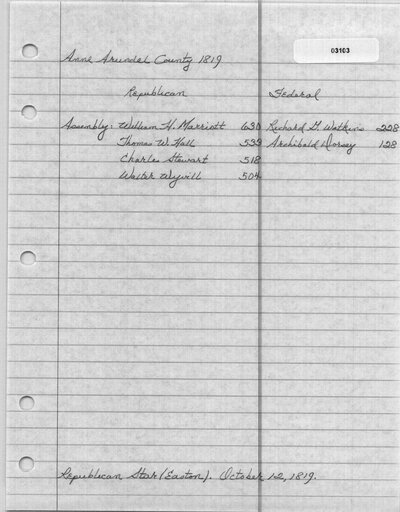 03103
Anne Arundel County 1819
Republican Federal
Assembly: William H. Marriott 630 Richard G. Watkins 228
Thomas W. Hall 533 Archibald Dorsey 128
Charles Stewart 518
Walter Wyvill 504
Republican Star (Easton). October 12, 1819.